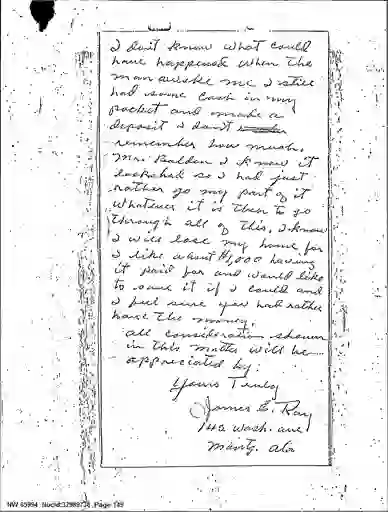 I don't know what could
have happened when the
man awoke me I still
had some cash in my
pocket and made a
deposit I don't
remember how much.
Mr. I know it
looks bad so I had just
rather go my part of it
whatever it is then to go
through all of this, I know
I will lose my home for
I like about $1,000 having
it paid for and would like
to save it if I could and
I feel sure you had rather
have the money.
all consideration shown
in this matter will be
appreciated by:
Yours Truly
James E. Ray
Wash. ave
Montg. Ala
NW 65994 Page 149